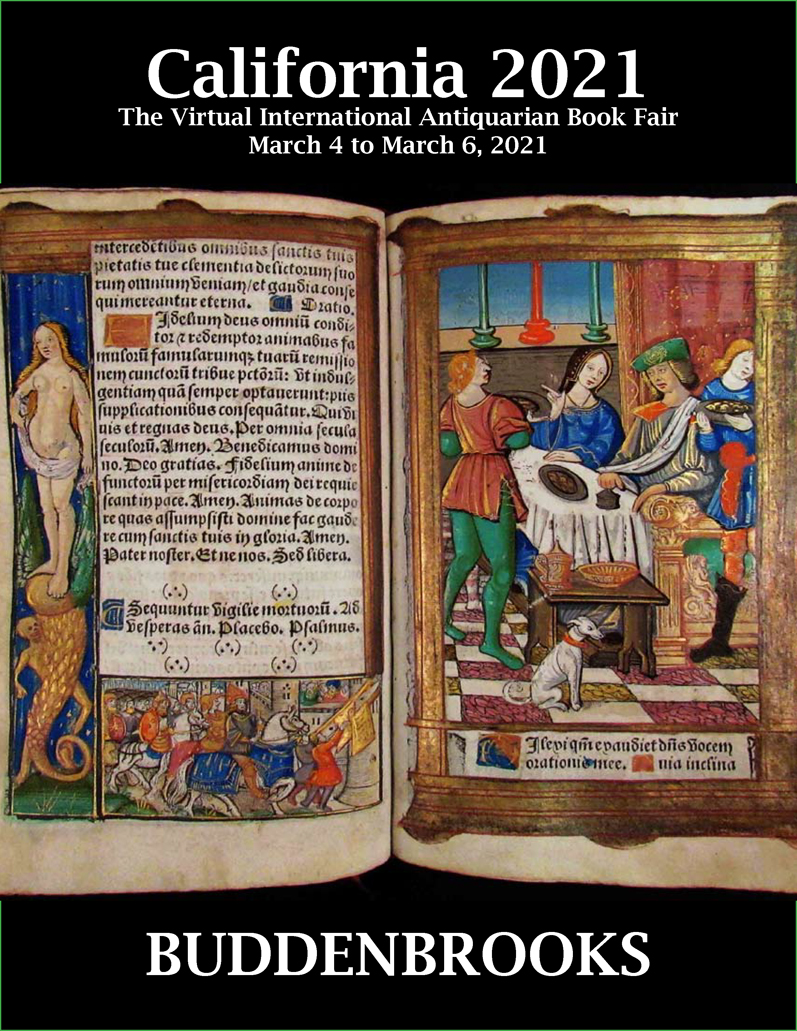 California 2021
The Virtual International Antiquarian Book Fair
March 4 to March 6, 2021
intercedētibus omnibus sanctis tuis
pietatis tue clementia delictorum suo
rum omnium veniam/et gaudia conse
qui mereantur eterna. Oratio.
Fidelium deus omniū condi-
tor ⁊ redemptor animabus fa
mulorū famularumqꝫ tuarū remissio
nem cunctorū tribue pctōrū: vt indul-
gentiam quā semper optauerunt: piis
supplicationibus consequātur. Qui vi
uis et regnas deus. Per omnia secula
seculorū. Amen. Benedicamus domi
no. Deo gratias. Fidelium anime de
functorū per misericordiam dei requie
scant in pace. Amen. Animas de corpo
re quas assumpsisti domine fac gaude
re cum sanctis tuis in gloria. Amen.
Pater noster. Et ne nos. Sed libera.
Sequuntur vigilie mortuorū. Ad
vesperas an̄. Placebo. Psalmus.
Dilexi qm̄ exaudiet dn̄s vocem
orationis mee. Quia inclina
BUDDENBROOKS